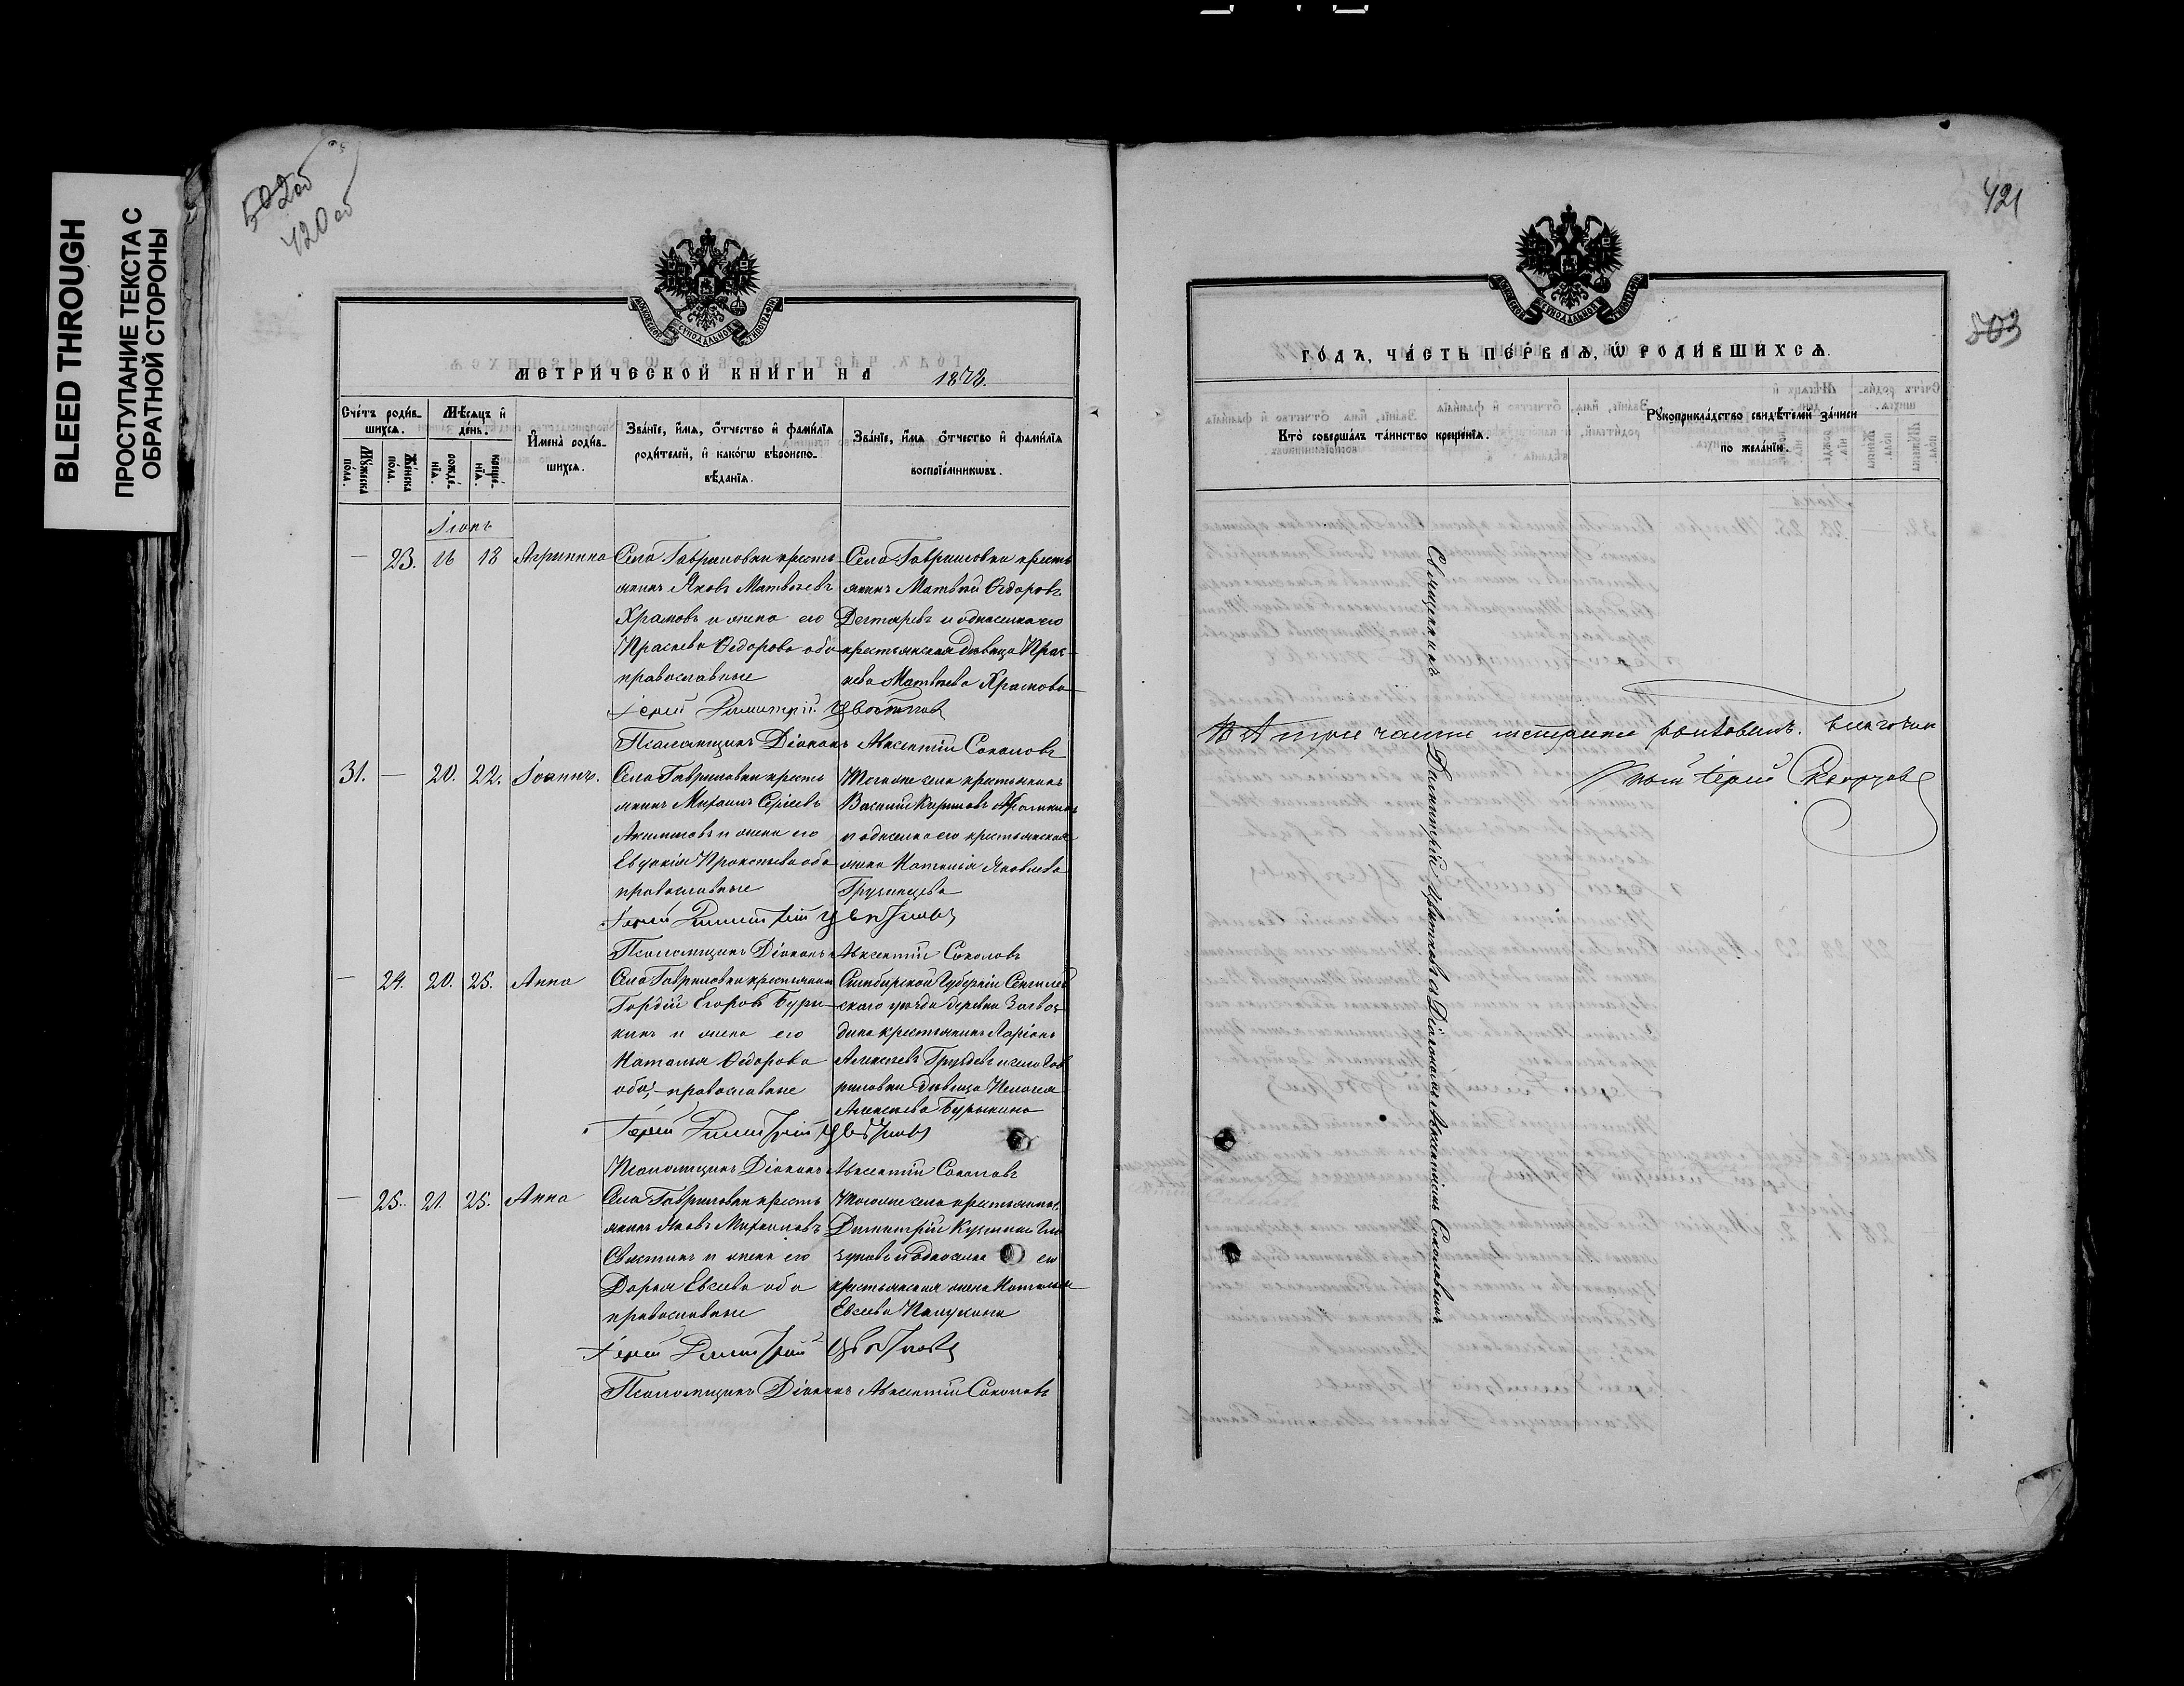 BLEED THROUGH
ПРОСТУПАНИЕ ТЕКСТА С
ОБРАТНОЙ СТОРОНЫ
502об
420об
МОСКОВСКОЙ СѴНОДАЛЬНОЙ ТИПОГРАФІИ
МЕТРИ́ЧЕСКОЙ КНИ́ГИ НА 1873.
Сче́тъ роди́в-
шихсѧ.
Мꙋ́жеска
по́ла.
Же́нска
по́ла.
Мѣ́сѧцъ и҆
де́нь.
рожде́-
нїѧ.
креще́-
нїѧ.
И҆мена̀ роди́в-
шихсѧ.
Зва́нїе, и҆́мѧ, ѻ҆́тчество и҆ фами́лїѧ
роди́телей, и҆ како́гѡ вѣроиспо-
вѣ́данїѧ.
Зва́нїе, и҆́мѧ ѻ҆́тчество и҆ фами́лїѧ
воспрїе́мникѡвъ.
Іюнь
— 23. 16 18 Агрипина Села Гавриловки кресть
янинъ Яковъ Матвѣевъ
Храмовъ и жена его
Праскева Ѳедорова оба
православные
Села Гавриловки кресть
янинъ Матвѣй Ѳедоровъ
Дегтяревъ и односелка его
крестьянская дѣвица Прас-
кева Матвѣева Храмова
Іерей Димитрій Цвѣтковъ
Псаломщикъ Діаконъ Авксентій Соколовъ
31. — 20. 22. Іоаннъ. Села Гавриловки кресть
янинъ Михаилъ Сергѣевъ
Акимовъ и жена его
Евдокія Прокопьева оба
православные
Тогоже села крестьянинъ
Василій Карповъ
и односелка его крестьянская
жена Наталья Яковлева
Іерей Димитрій Цвѣтковъ
Псаломщикъ Діаконъ Авксентій Соколовъ
— 24. 20. 25. Анна Села Гавриловки крестьянинъ
Гордій Егоровъ Буры-
кинъ и жена его
Наталья Ѳедорова
оба православные
Симбирской Губерніи Сенгилей
скаго уѣзда деревни
дина крестьянинъ Ларіонъ
Алексѣевъ Груздевъ и села Гав
риловки дѣвица Пелагея
Алексѣева Бурыкина
Іерей Димитрій Цвѣтковъ
Псаломщикъ Діаконъ Авксентій Соколовъ
— 25. 21. 25. Анна Села Гавриловки кресть
янинъ Яковъ Михаиловъ
Свистинъ и жена его
Дарья Евсеева оба
православные
Тогоже села крестьянинъ
Димитрій Кузминъ
и односелка его
крестьянская жена Наталья
Евсеева
Іерей Димитрій Цвѣтковъ
Псаломщикъ Діаконъ Авксентій Соколовъ
421
503
МОСКОВСКОЙ СѴНОДАЛЬНОЙ ТИПОГРАФІИ
ГО́ДЪ, ЧА́СТЬ ПЕ́РВАѦ, Ѡ҆ РОДИ́ВШИХСѦ.
Кто̀ соверша́лъ та́инство креще́нїѧ.
Рꙋкоприкла́дство свидѣ́телей за́писи
по жела́нїю.
Священникъ Димитрій Цвѣтковъ съ Діакономъ Авксентіемъ Соколовымъ
Іерей Скворцовъ